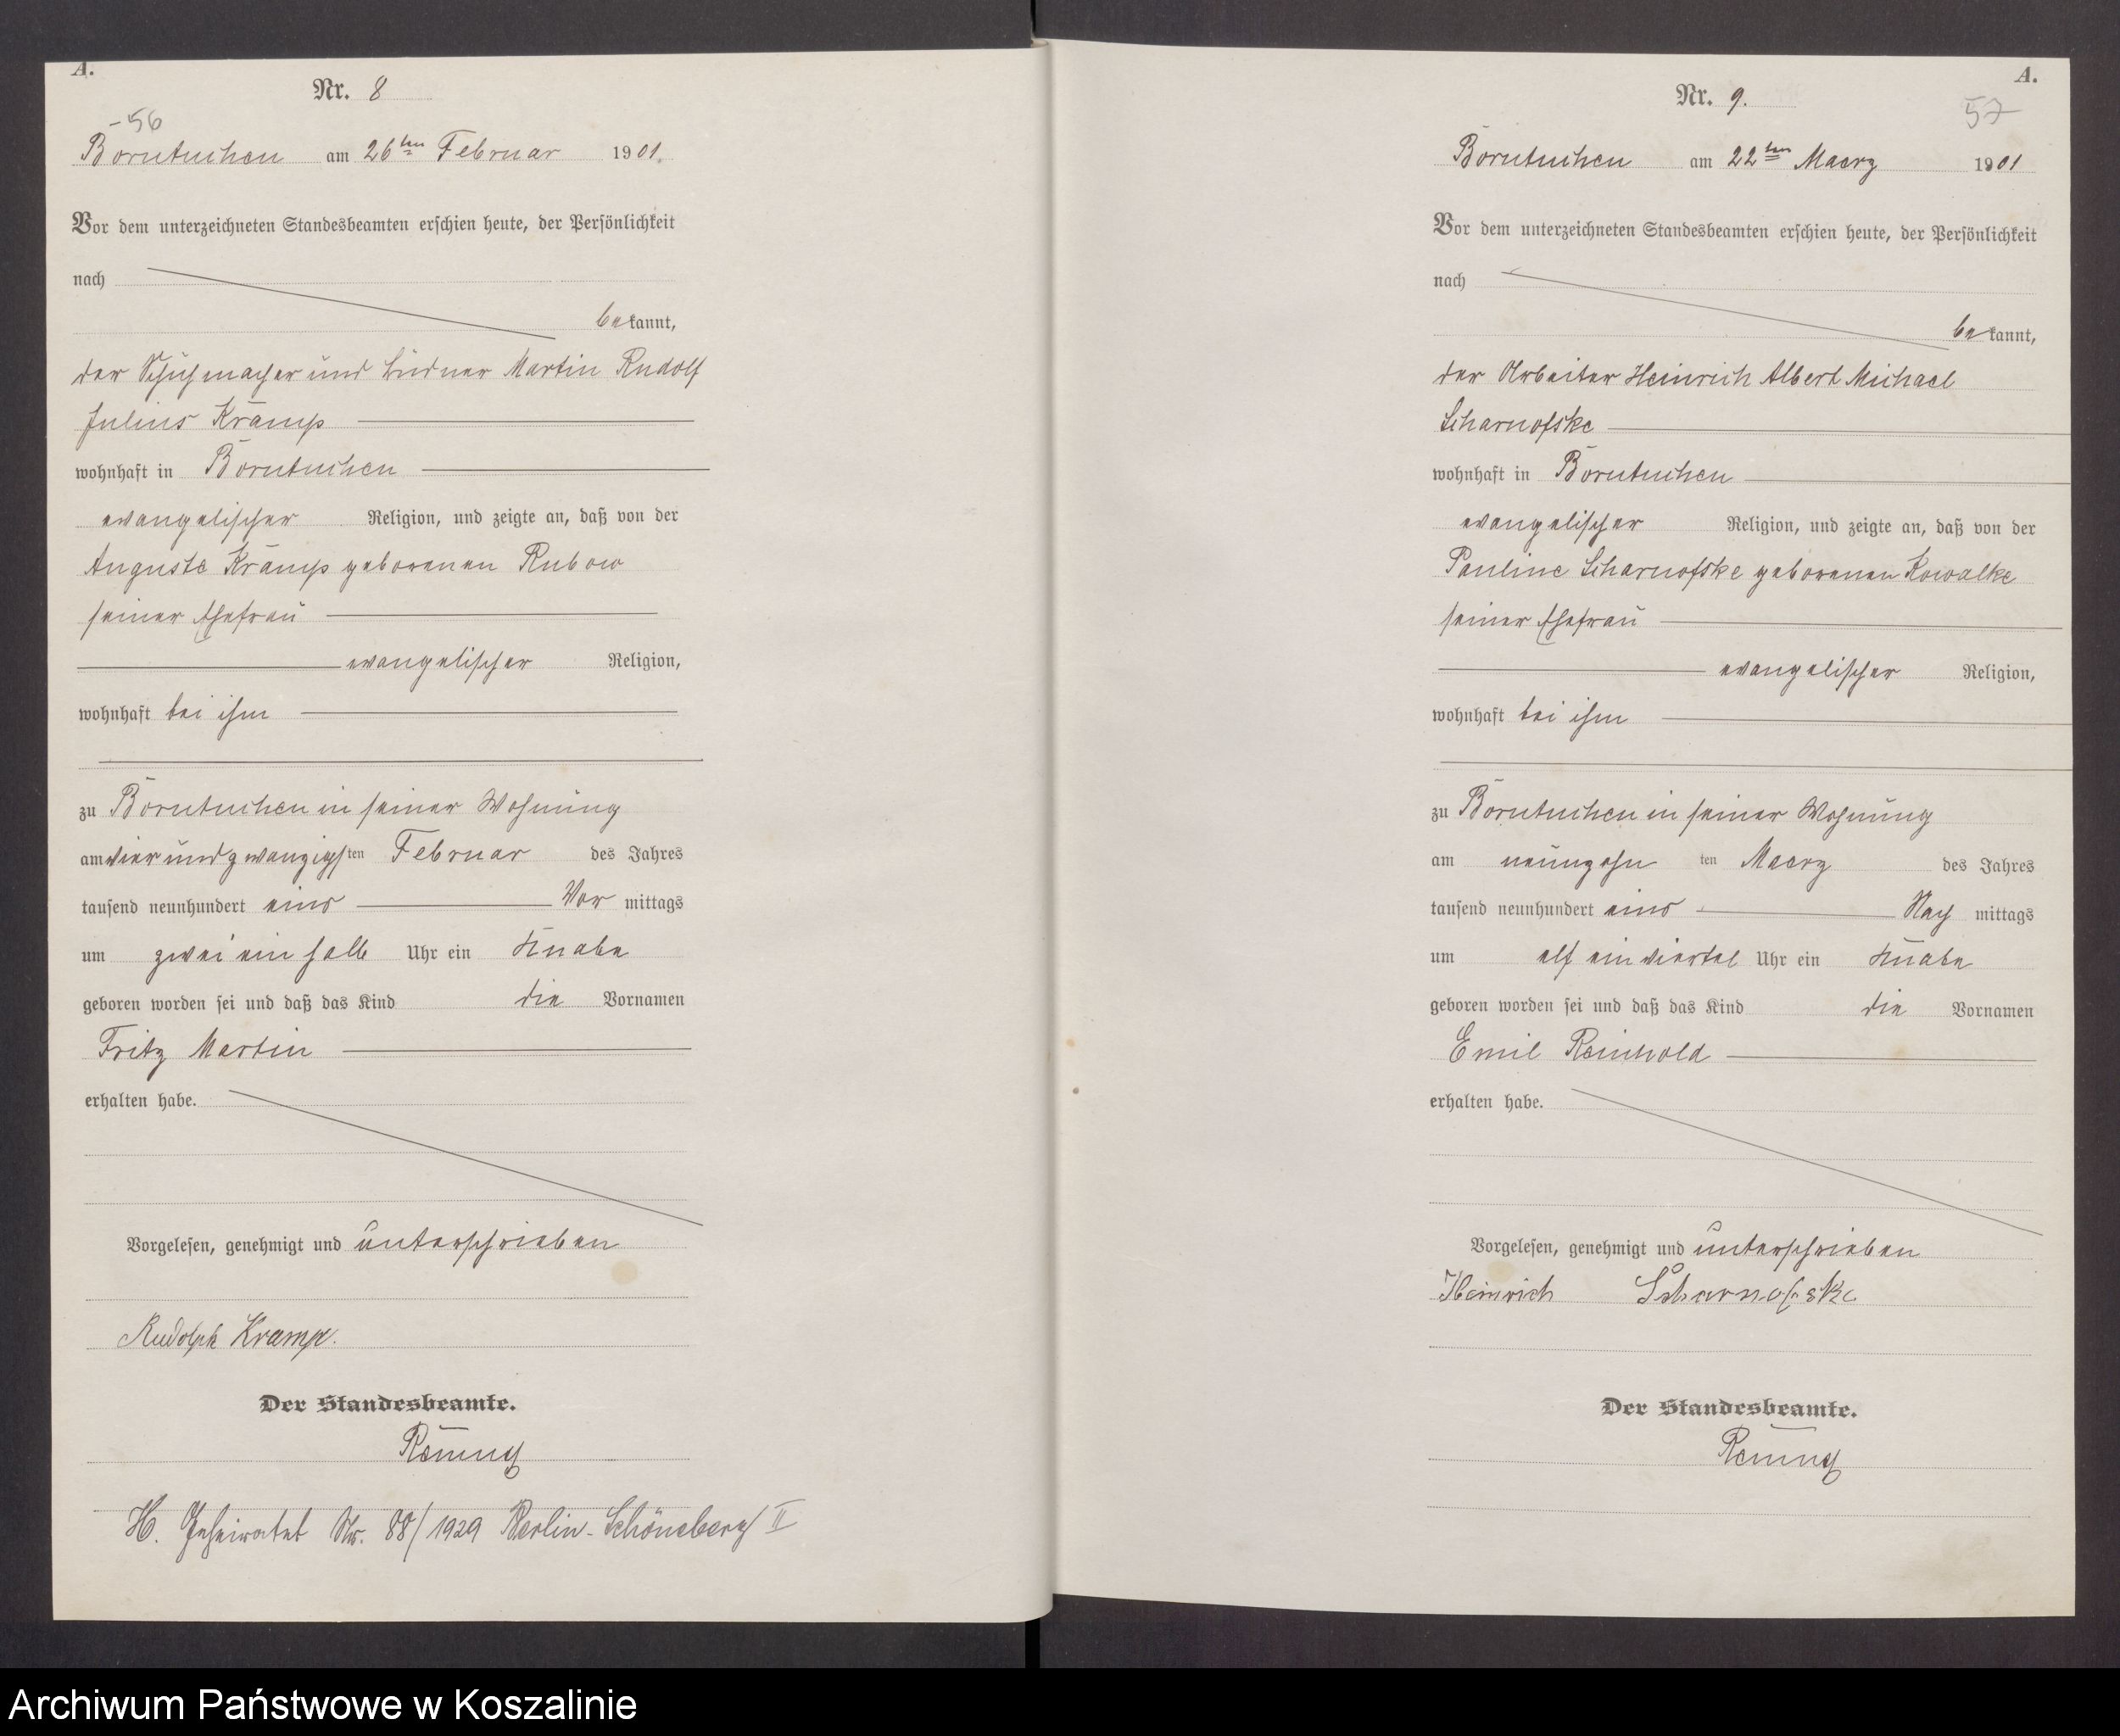 A.
Nr. 8
-56
Borntuchen am 26ten Februar 1901.
Vor dem unterzeichneten Standesbeamten erschien heute, der Persönlichkeit
nach
bekannt,
der Schuhmacher und Büdner Martin Rudolf
Julius Kramp
wohnhaft in Borntuchen
evangelischer Religion, und zeigte an, daß von der
Auguste Kramp geborenen Rubow
seiner Ehefrau
evangelischer Religion,
wohnhaft bei ihm
zu Borntuchen in seiner Wohnung
am vierundzwanzigsten Februar des Jahres
tausend neunhundert eins Vor mittags
um zwei ein halb Uhr ein Knabe
geboren worden sei und daß das Kind die Vornamen
Fritz Martin
erhalten habe.
Vorgelesen, genehmigt und unterschrieben
Rudolph Kramp.
Der Standesbeamte.
H. Geheiratet Nr. 88/1929 Berlin-Schöneberg II
A.
Nr. 9.
57
Borntuchen am 22ten Maerz 1901
Vor dem unterzeichneten Standesbeamten erschien heute, der Persönlichkeit
nach
bekannt,
der Arbeiter Heinrich Albert Michael
Scharnofske
wohnhaft in Borntuchen
evangelischer Religion, und zeigte an, daß von der
Pauline Scharnofske geborenen Kowalke
seiner Ehefrau
evangelischer Religion,
wohnhaft bei ihm
zu Borntuchen in seiner Wohnung
am neunzehn ten Maerz des Jahres
tausend neunhundert eins Nach mittags
um elf einviertel Uhr ein Knabe
geboren worden sei und daß das Kind die Vornamen
Emil Reinhold
erhalten habe.
Vorgelesen, genehmigt und unterschrieben
Heinrich Scharnofske
Der Standesbeamte.
Archiwum Państwowe w Koszalinie